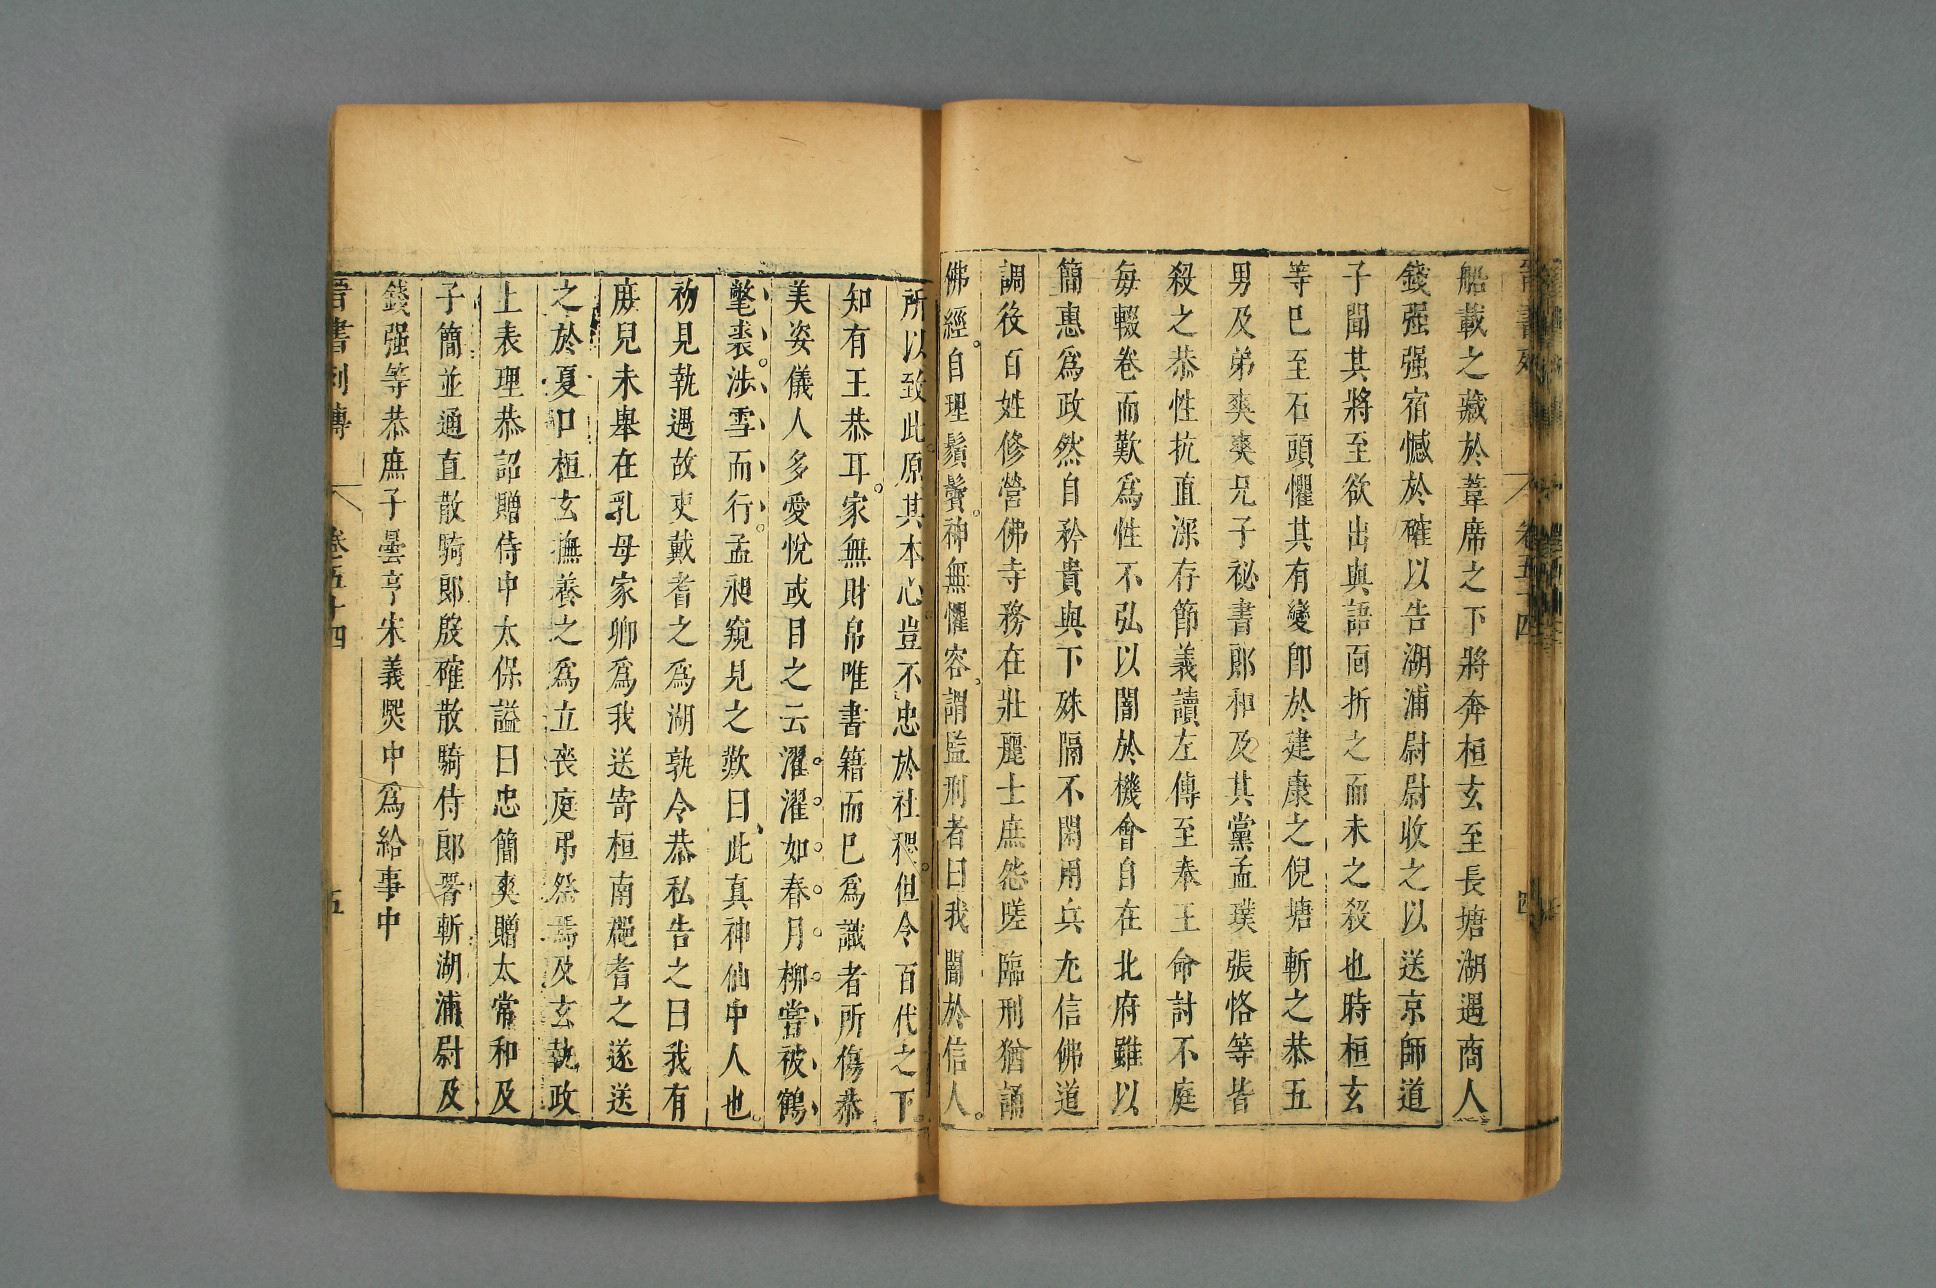 晉書列 卷五十四 四
船載之藏於葦席之下將奔桓玄至長塘湖遇商人
錢强强宿憾於確以告湖浦尉尉收之以送京師道
子聞其將至欲出與語面折之而未之殺也時桓玄
等已至石頭懼其有變卽於建康之倪塘斬之恭五
男及弟爽爽兄子祕書郞和及其黨孟璞張恪等皆
殺之恭性抗直深存節義讀左傳至奉王命討不庭
每輟卷而歎爲性不弘以闇於機會自在北府雖以
簡惠爲政然自矜貴與下殊隔不閑用兵尢信佛道
調役百姓修營佛寺務在壯麗士庶怨嗟臨刑猶誦
佛經。自理鬚鬢。神無懼容。謂監刑者曰我闇於信人。
所以致此。原其本心。豈不忠於社稷。但令百代之下。
知有王恭耳。家無財帛唯書籍而已爲識者所傷恭
美姿儀人多愛悅或目之云濯濯如春月柳嘗被鶴
氅裘。涉雪而行。孟昶窺見之歎曰、此真神仙中人也。
初見執遇故吏戴耆之爲湖孰令恭私告之曰我有
庶兒未舉在乳母家卿爲我送寄桓南郡耆之遂送
之於夏口桓玄撫養之爲立喪庭弔祭焉及玄執政
上表理恭詔贈侍中太保謚曰忠簡爽贈太常和及
子簡並通直散騎郞殷確散騎侍郞署斬湖浦尉及
錢强等恭庶子曇亨宋義熙中爲給事中
晉書列傳 卷五十四 五